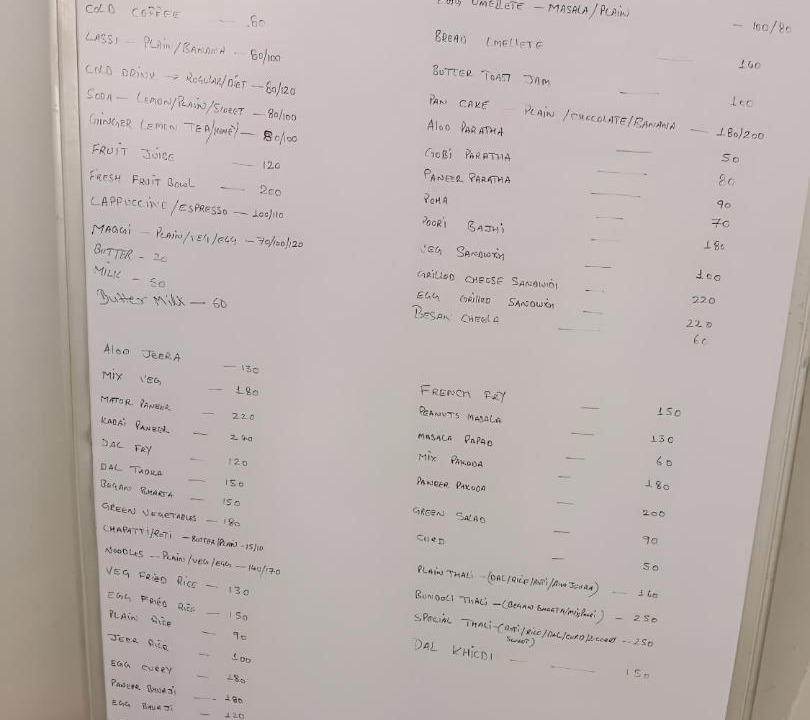 COLD COFFEE — 80
LASSI — PLAIN/BANANA — 80/100
COLD DRINK → REGULAR/DIET — 80/120
SODA — LEMON/PLAIN/SWEET — 80/100
GINGER LEMON TEA/HONEY — 80/100
FRUIT JUICE — 120
FRESH FRUIT BOWL — 200
CAPPUCCINE/ESPRESSO — 100/110
MAGGI — PLAIN/VEG/EGG — 70/100/120
BUTTER — 20
MILK — 50
Butter Milk — 60
ALOO JEERA — 130
MIX VEG — 180
MATOR PANEER — 220
KADAI PANEER — 240
DAL FRY — 120
DAL TADKA — 150
BEGAN BHARTA — 150
GREEN VEGETABLES — 180
CHAPATTI/ROTI — BUTTER/PLAIN — 15/10
NOODLES — PLAIN/VEG/EGG — 140/170
VEG FRIED RICE — 130
EGG FRIED RICE — 150
PLAIN RICE — 90
JEER RICE — 100
EGG CURRY — 180
PANEER BHURJI — 180
EGG BHURJI — 120
OMELLETE — MASALA/PLAIN — 100/80
BREAD OMELLETE — 140
BUTTER TOAST JAM — 100
PAN CAKE — PLAIN/CHOCOLATE/BANANA — 180/200
ALOO PARATHA — 50
GOBI PARATHA — 80
PANEER PARATHA — 90
POHA — 70
POORI BAJHI — 180
VEG SANDWICH — 100
GRILLED CHEESE SANDWICH — 220
EGG GRILLED SANDWICH — 220
BESAN CHEELA — 60
FRENCH FRY — 150
PEANUTS MASALA — 130
MASALA PAPAD — 60
MIX PAKODA — 180
PANEER PAKODA — 200
GREEN SALAD — 90
CURD — 50
PLAIN THALI — (DAL/RICE/ROTI/ALOO JEERA) — 160
BUNDELI THALI — (BEGAN BHARTA/) — 250
SPECIAL THALI — (ROTI/RICE/DAL/CURD/ SWEET) — 250
DAL KHICDI — 150